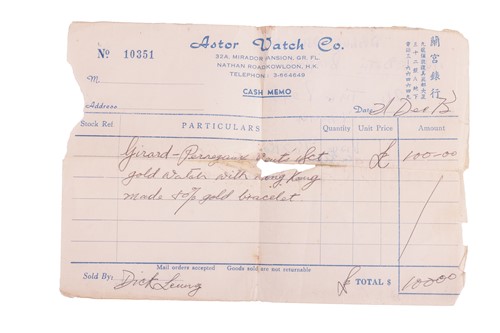 Nº 10351
Astor Watch Co.
32A, MIRADOR MANSION, GR. FL.
NATHAN ROAD KOWLOON, H.K.
TELEPHONE: 3-664649
CASH MEMO
蘭宮錶行
M.
Address
Date 21 Dec
Stock Ref. PARTICULARS Quantity Unit Price Amount
Girard-Perregaux 18ct £ 100.00
gold watch with Hong Kong
made gold bracelet
Mail orders accepted Goods sold are not returnable
Sold By: Dick Leung £ TOTAL $ 100.00